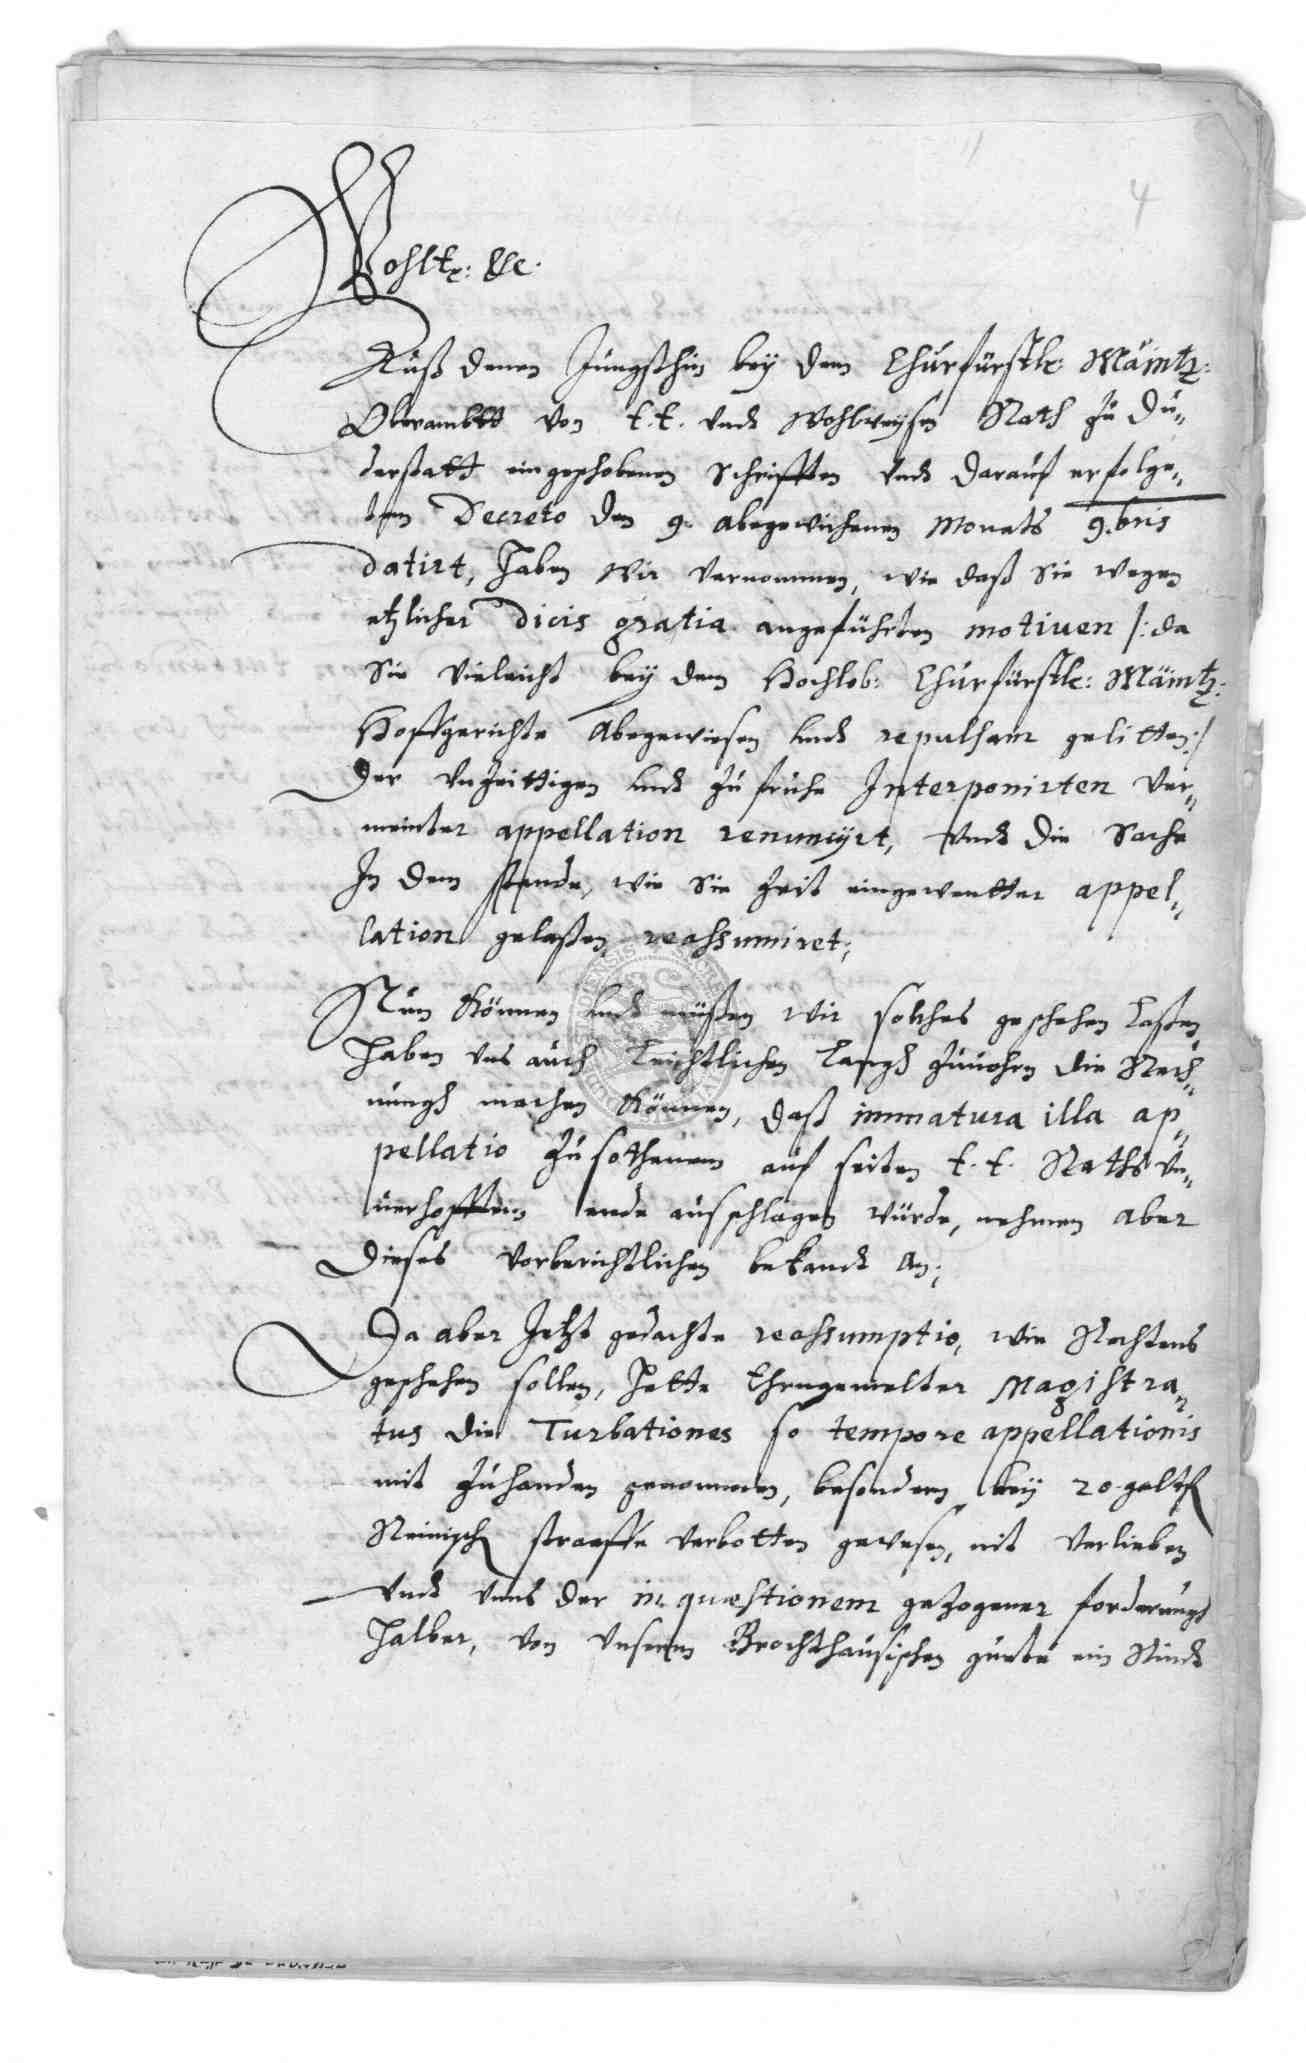 4
Wohltr: &c.
Auß denen Jüngsthin bey dem Churfürstl: Mäintz:
Oberambtt von t. t. undt Wohlweysen Rath zu Du„
derstatt eingeschobenen Schrifften undt darauf erfolge„
tem Decreto den 9. abgewichenen Monats 9.bris
datirt, haben wir vernommen, wie daß Sie wegen
etzlicher Dicis gratia angeführten motiuen /: da
Sie vieleicht bey dem Hochlob: Churfürstl: Mäintz:
Hoffgerichte Abgewiesen undt repulsam gelitten :/
der unzeittigen undt zu frühe Interponirten Ver„
meinter appellation renuncijrt, undt die Sache
In dem stande, wie Sie Zeit eingewentter appel„
lation gelaßen reassumiret;
Nun können undt müßen wir solches geschehen laßen
haben uns auch leichtlichen langst zuuohrn die Rech„
nungh machen können, daß immatura illa ap„
pellatio zu sothanem auf seiten t. t. Raths Un„
uerhofften ende ausschlagen würde, nehmen aber
dieses vorberichtlichen bekandt an;
Da aber Jetzt gedachte reassumptio, wie Rechtens
geschehen sollen, hette Ehrngemelter Magistra„
tus die Turbationes so tempore appellationis
mit zuhanden genommen, besondern bey 20. goltfl
Reinisch straeffe verbotten gewesen, nit verlieben
undt uns der in quæstionem gezogener forderungh
halber, von unserm Brochthausischen guete ein Rindt